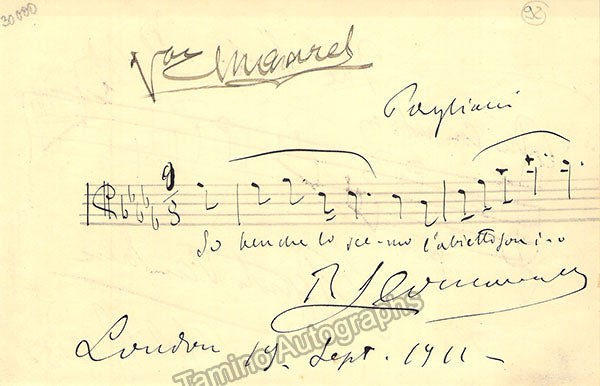 30000
92
Vor Maurel
Pagliacci
9
8
So ben che lo sce-mo l'abietto son i-o
R Leoncavallo
London 19. Sept. 1911 -
Tamino Autographs